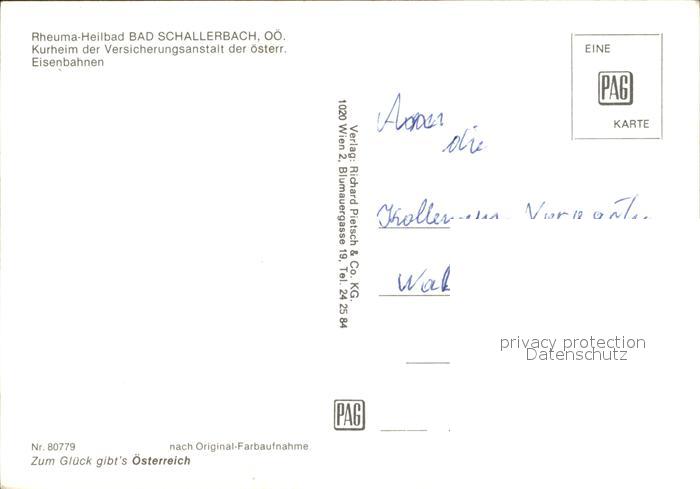 Rheuma-Heilbad BAD SCHALLERBACH, OÖ.
Kurheim der Versicherungsanstalt der österr.
Eisenbahnen
EINE
PAG
KARTE
die
Verlag: Richard Pietsch & Co. KG.
1020 Wien 2, Blumauergasse 19, Tel. 24 25 84
privacy protection
Datenschutz
PAG
Nr. 80779 nach Original-Farbaufnahme
Zum Glück gibt's Österreich